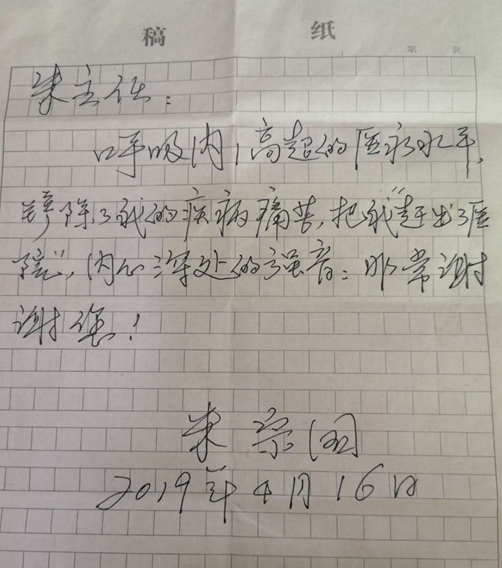 稿 纸
第 页
朱主任：
呼吸内，高超的医术水平，
铲除了我的疾病痛苦，把我“赶出了医
院”，内心深处的强音：非常谢
谢您！
朱宗国
2019年4月16日